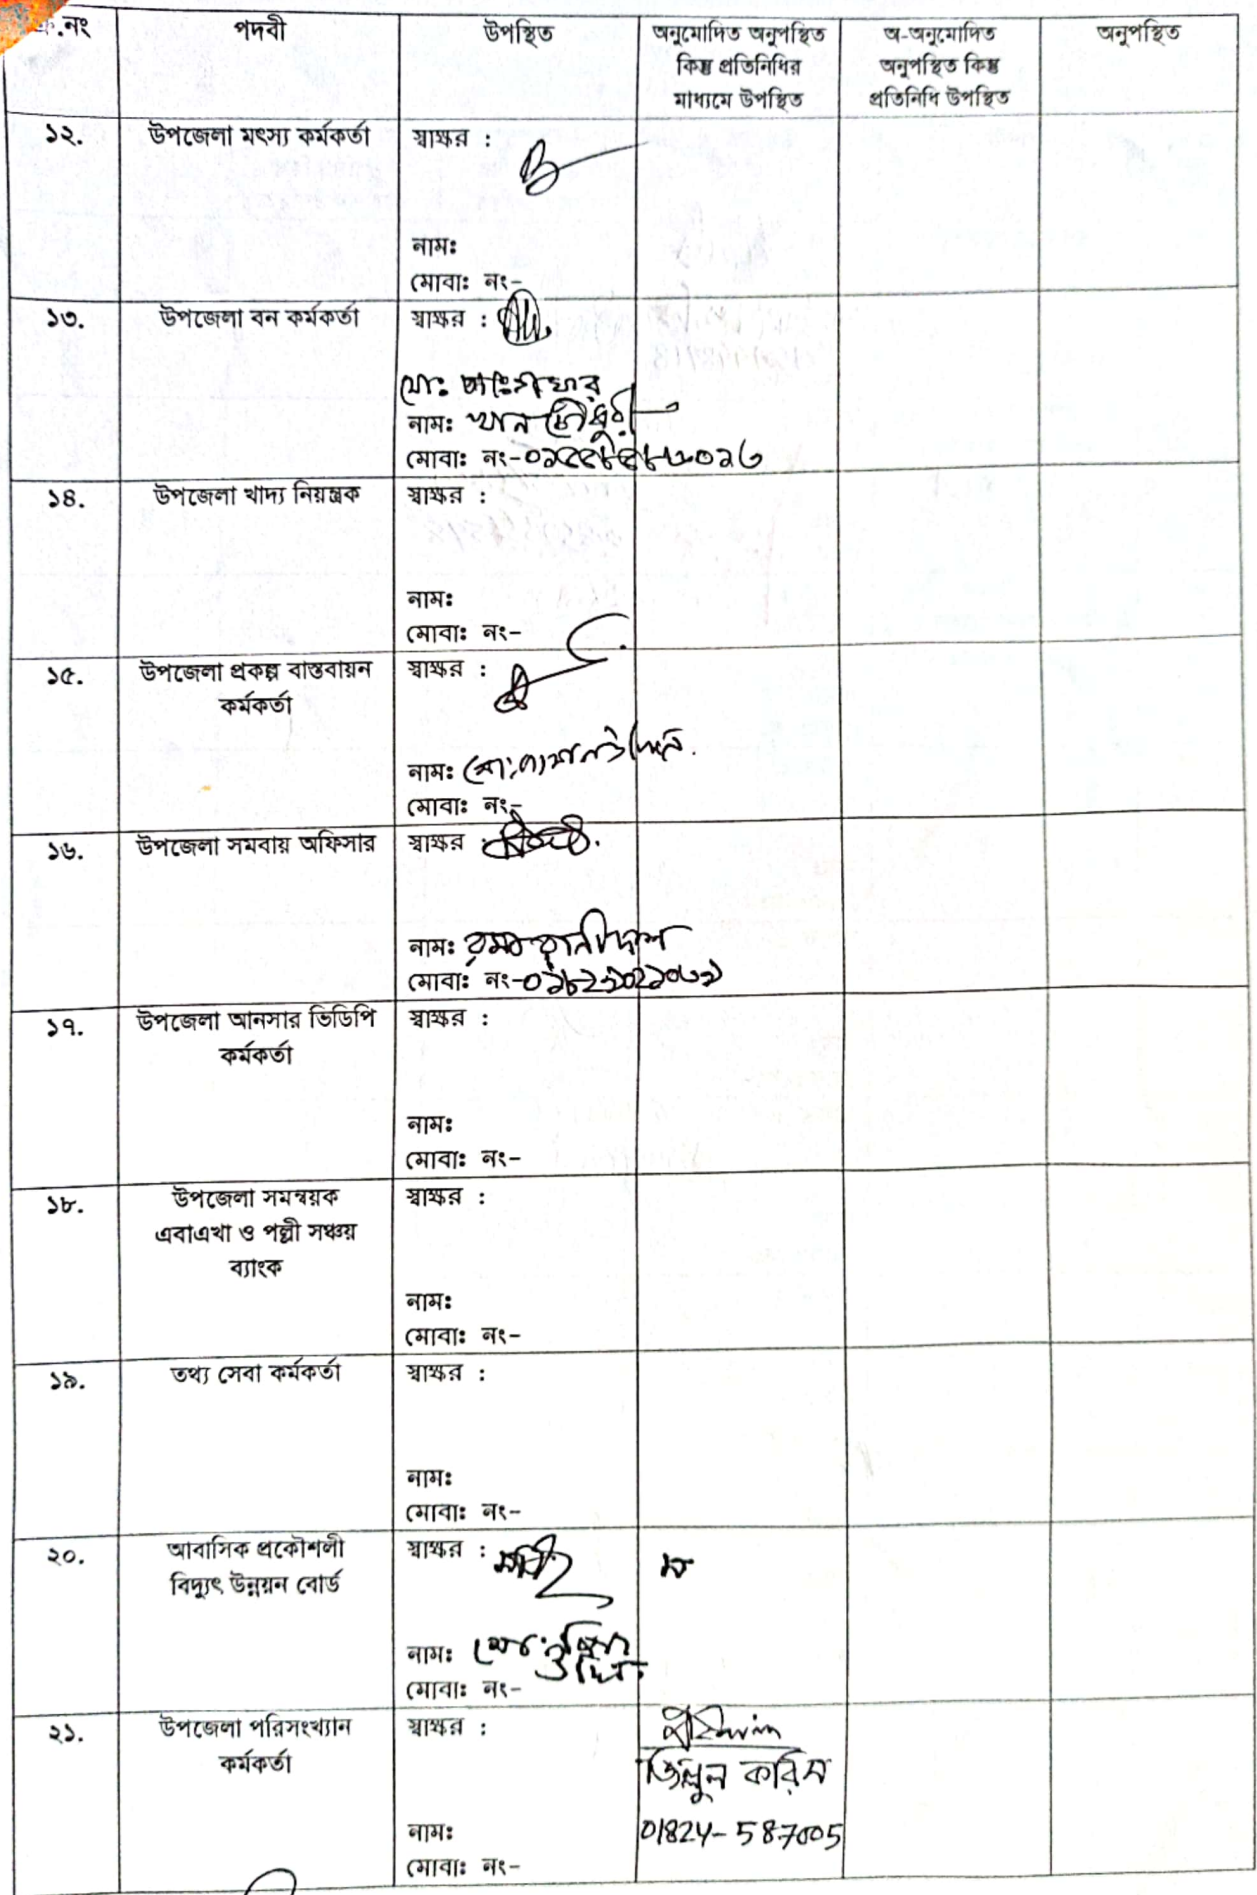 ক্র.নং
পদবী
উপস্থিত
অনুমোদিত অনুপস্থিত
কিন্তু প্রতিনিধির
মাধ্যমে উপস্থিত
অ-অনুমোদিত
অনুপস্থিত কিন্তু
প্রতিনিধি উপস্থিত
অনুপস্থিত
১২.
উপজেলা মৎস্য কর্মকর্তা
স্বাক্ষর :
নাম:
মোবা: নং-
১৩.
উপজেলা বন কর্মকর্তা
স্বাক্ষর :
মো:
নাম: খান চৌধুরী
মোবা: নং-
১৪.
উপজেলা খাদ্য নিয়ন্ত্রক
স্বাক্ষর :
নাম:
মোবা: নং-
১৫.
উপজেলা প্রকল্প বাস্তবায়ন
কর্মকর্তা
স্বাক্ষর :
নাম: মো:
মোবা: নং-
১৬.
উপজেলা সমবায় অফিসার
স্বাক্ষর :
নাম: রানী দাশ
মোবা: নং-
১৭.
উপজেলা আনসার ভিডিপি
কর্মকর্তা
স্বাক্ষর :
নাম:
মোবা: নং-
১৮.
উপজেলা সমন্বয়ক
এবাএখা ও পল্লী সঞ্চয়
ব্যাংক
স্বাক্ষর :
নাম:
মোবা: নং-
১৯.
তথ্য সেবা কর্মকর্তা
স্বাক্ষর :
নাম:
মোবা: নং-
২০.
আবাসিক প্রকৌশলী
বিদ্যুৎ উন্নয়ন বোর্ড
স্বাক্ষর :
নাম: মো:
মোবা: নং-
২১.
উপজেলা পরিসংখ্যান
কর্মকর্তা
স্বাক্ষর :
নাম:
মোবা: নং-
জিল্লুল করিম
01824-587005